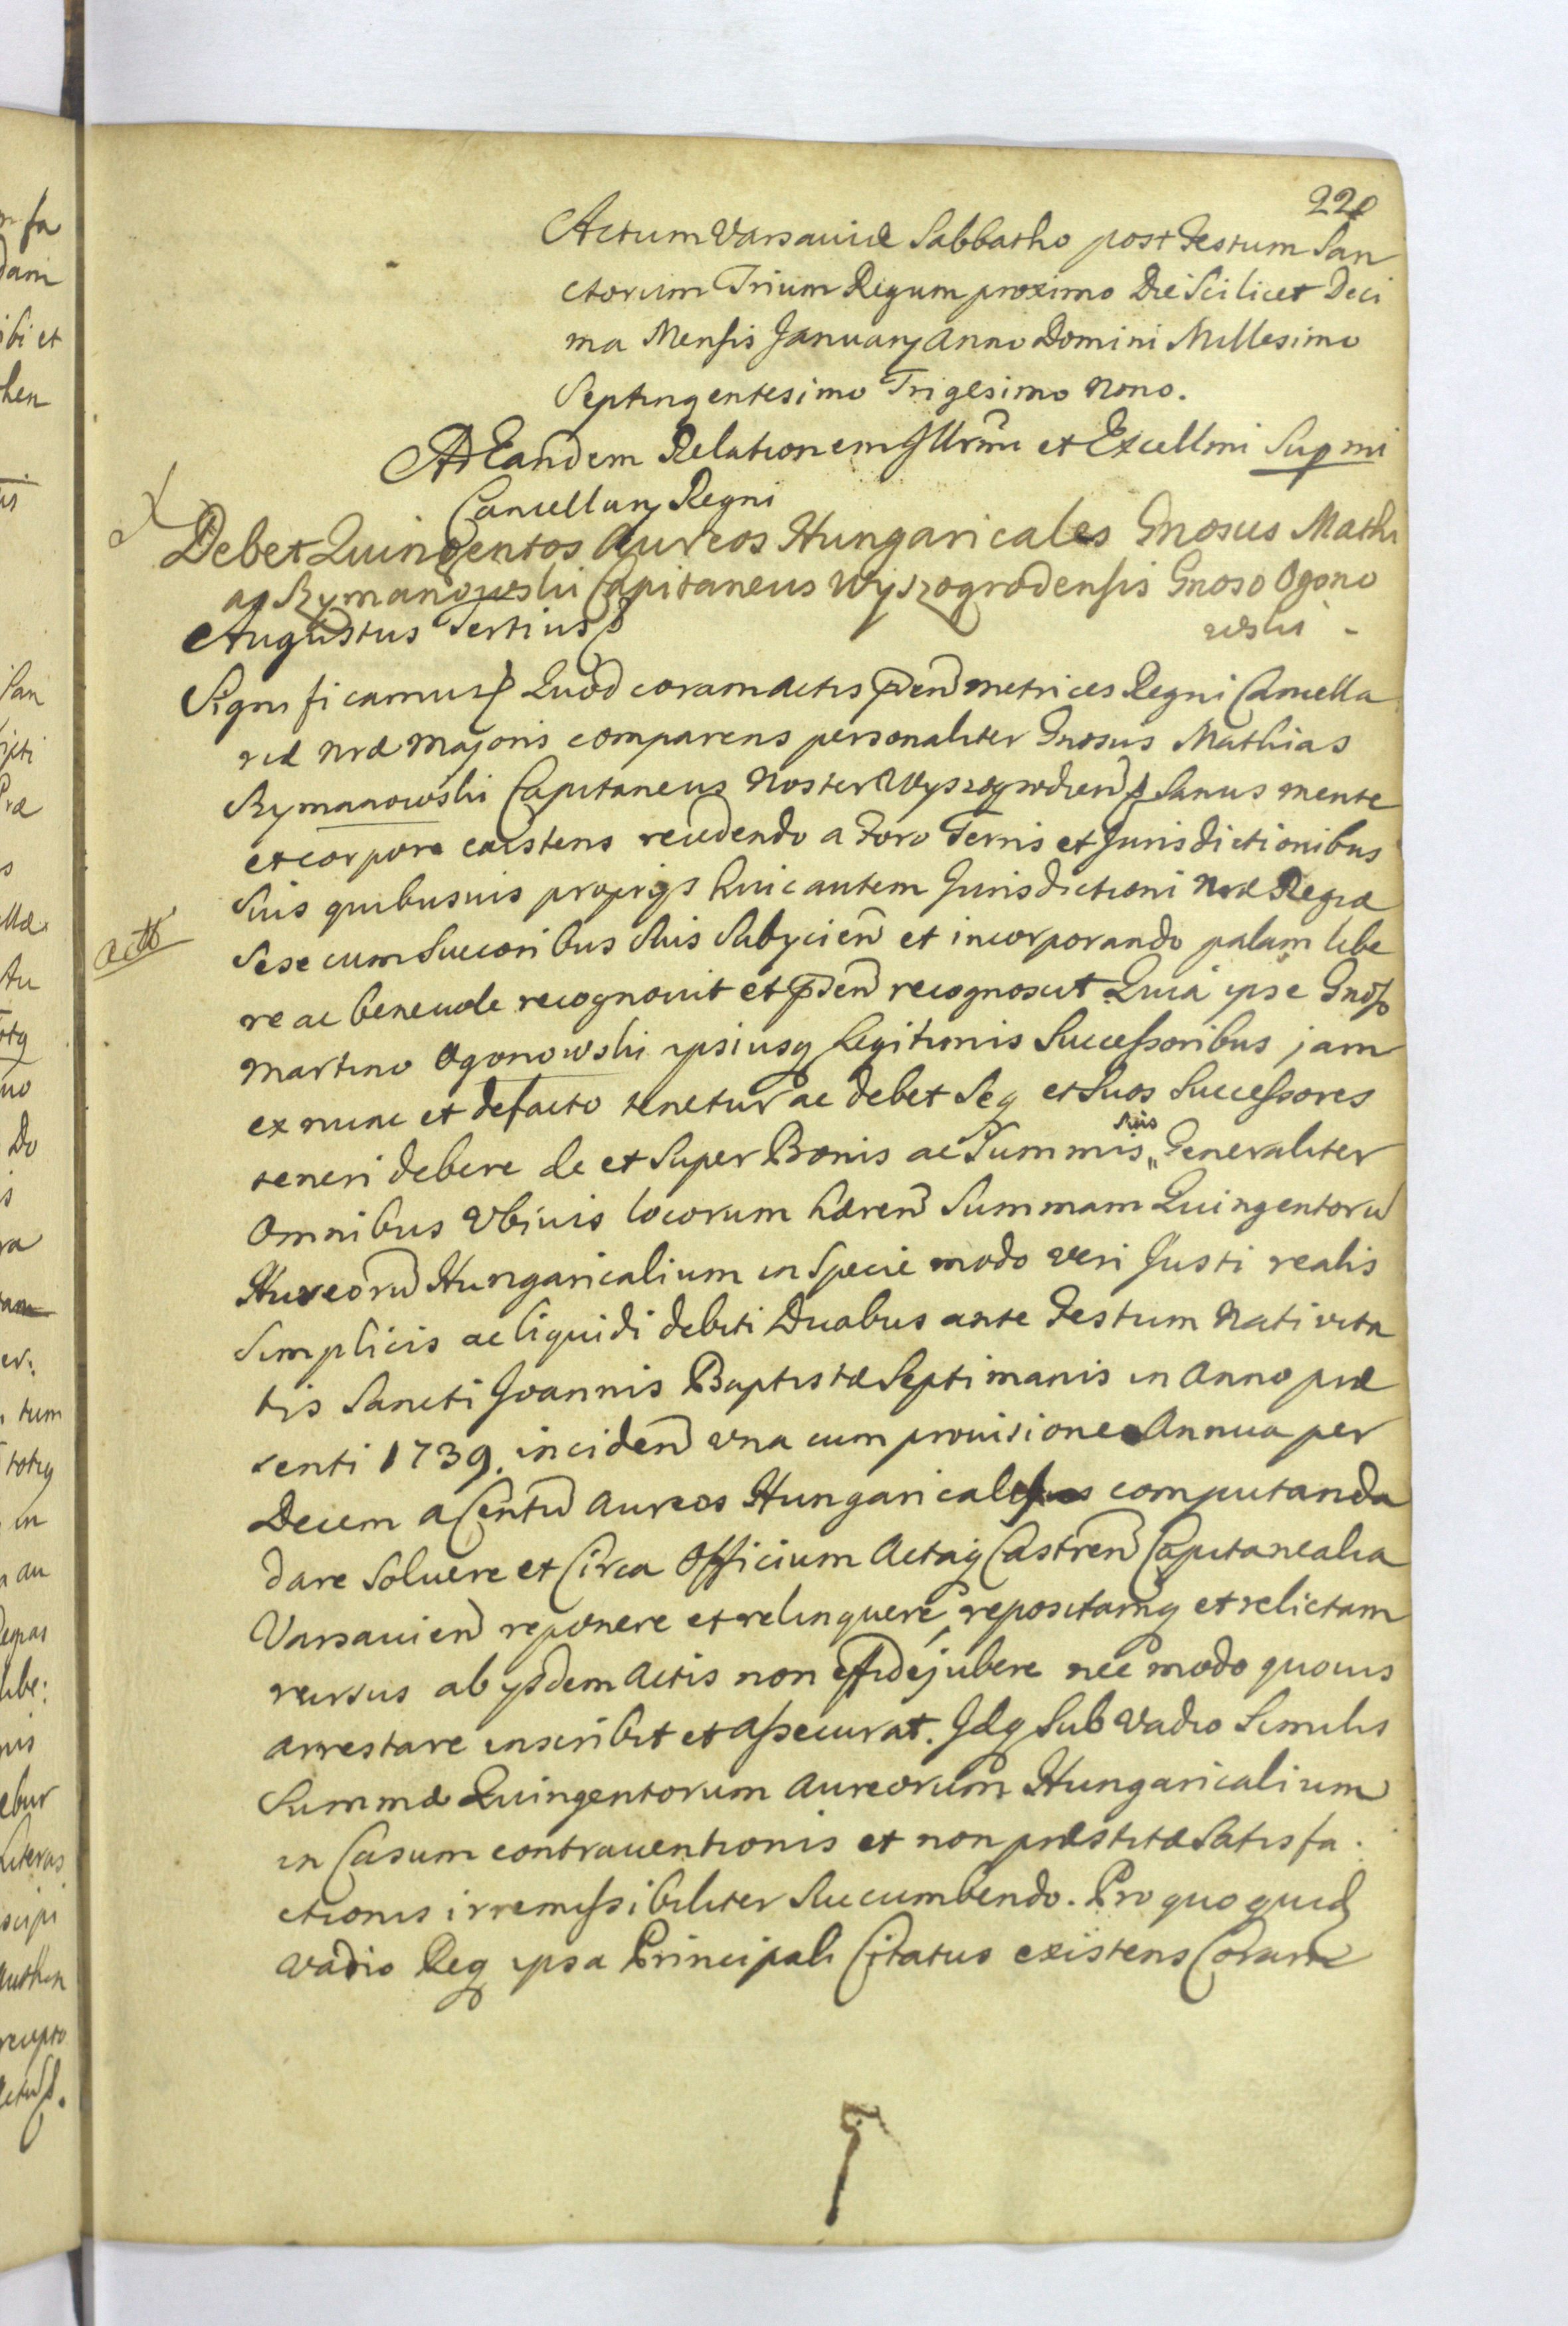 220
Actum Varsaviæ Sabbatho post Festum San
ctorum Trium Regum proximo Die Scilicet Deci
ma Mensis January Anno Domini Millesimo
Septingentesimo Trigesimo Nono.
Ad Eandem Relationem Illrmi et Excellmi Supmi
Cancellary Regni
Debet Quingentos Aureos Hungaricales Gnosus Mathi
as Rymanowski Capitaneus Wyszogrodensis Gnoso Ogono
wski
Augustus Tertius
Significamus Quod coram Actis pden metrices Regni Cancella
riæ Nræ Majoris comparens personaliter Gnosus Mathias
Rymanowski Capitaneus Noster Wyszogrodien Sanus mente
et corpore existens recedendo a Foro Terris et Jurisdictionibus
Suis quibusuis proprys huic autem Jurisdictioni Nræ Regiæ
Sese cum Succoribus Suis Subycien et incorporando palam libe
actt
re ac beneuole recognouit et pden recognoscit Quia ipse Gnoso
Martino Ogonowski ipsiusq Legitimis Successoribus jam
ex nunc et defacto tenetur ac debet Seq et Suos Successores
teneri debere de et Super Bonis ac Summis Suis Generaliter
Omnibus Vbiuis locorum hæren Summam Quingentoru
Aureoru Hungaricalium in Specie modo veri Justi realis
Simplicis ac liquidi debiti Duabus ante Festum Nativita
tis Sancti Joannis Baptistæ Septimanis in Anno præ
senti 1739. inciden vna cum prouisione Annua per
Decem a Centu Aureos Hungaricales computanda
dare Soluere et Circa Officium Actaq Castren Capitanealia
Varsauien reponere et relinquere, repositamq et relictam
rursus ab ysdem Actis non effidejubere nec modo quouis
arrestare inscribit et assecurat. Idq Sub vadio Similis
Summæ Quingentorum Aureorum Hungaricalium
in Casum contrauentionis et non præstitæ Satisfa
ctionis irremissibiliter Succumbendo. Pro quo quid
vadio Req ipsa Principali Citatus existens Coram